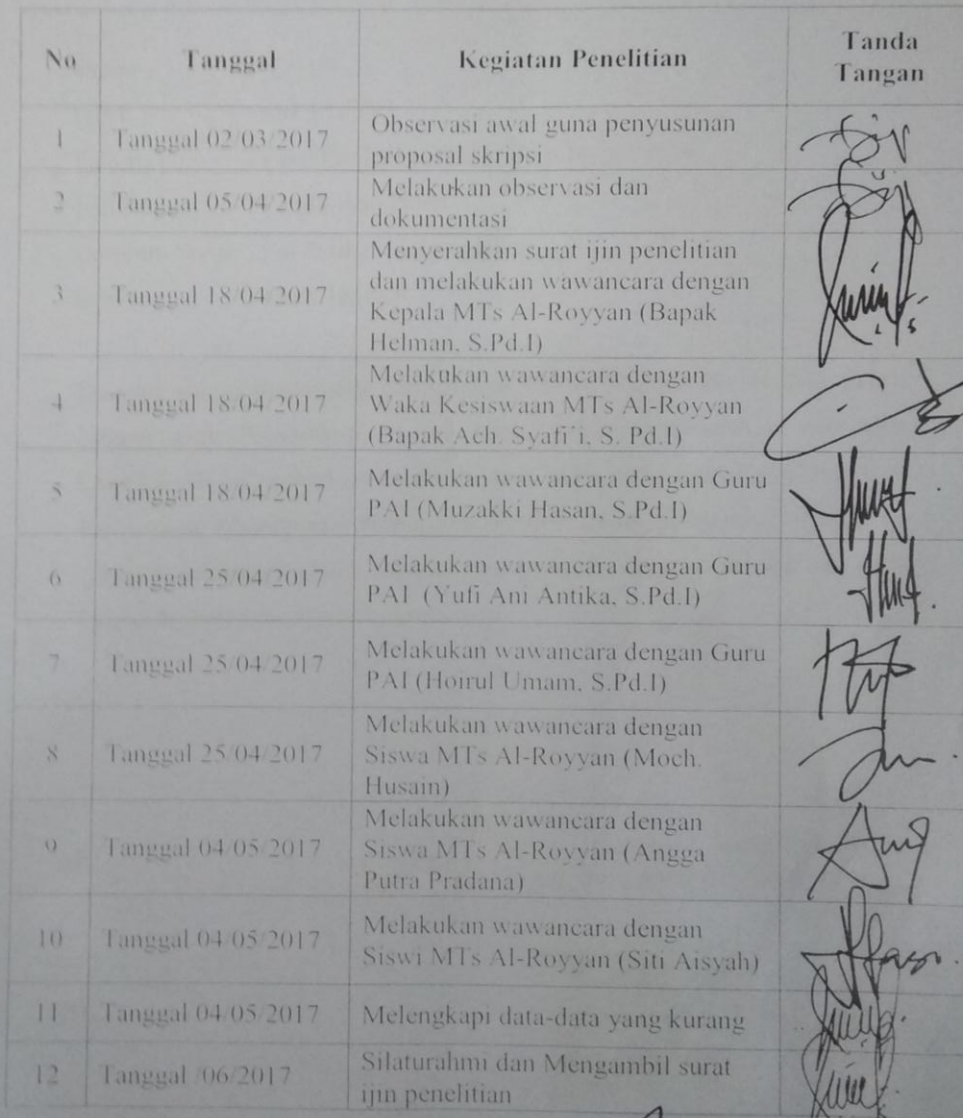 No Tanggal Kegiatan Penelitian Tanda
Tangan
1 Tanggal 02/03/2017 Observasi awal guna penyusunan
proposal skripsi
2 Tanggal 05/04/2017 Melakukan observasi dan
dokumentasi
3 Tanggal 18/04/2017 Menyerahkan surat ijin penelitian
dan melakukan wawancara dengan
Kepala MTs Al-Royyan (Bapak
Helman, S.Pd.I)
4 Tanggal 18/04/2017 Melakukan wawancara dengan
Waka Kesiswaan MTs Al-Royyan
(Bapak Ach. Syafi'i, S. Pd.I)
5 Tanggal 18/04/2017 Melakukan wawancara dengan Guru
PAI (Muzakki Hasan, S.Pd.I)
6 Tanggal 25/04/2017 Melakukan wawancara dengan Guru
PAI (Yufi Ani Antika, S.Pd.I)
7 Tanggal 25/04/2017 Melakukan wawancara dengan Guru
PAI (Hoirul Umam, S.Pd.I)
8 Tanggal 25/04/2017 Melakukan wawancara dengan
Siswa MTs Al-Royyan (Moch.
Husain)
9 Tanggal 04/05/2017 Melakukan wawancara dengan
Siswa MTs Al-Royyan (Angga
Putra Pradana)
10 Tanggal 04/05/2017 Melakukan wawancara dengan
Siswi MTs Al-Royyan (Siti Aisyah)
11 Tanggal 04/05/2017 Melengkapi data-data yang kurang
12 Tanggal /06/2017 Silaturahmi dan Mengambil surat
ijin penelitian